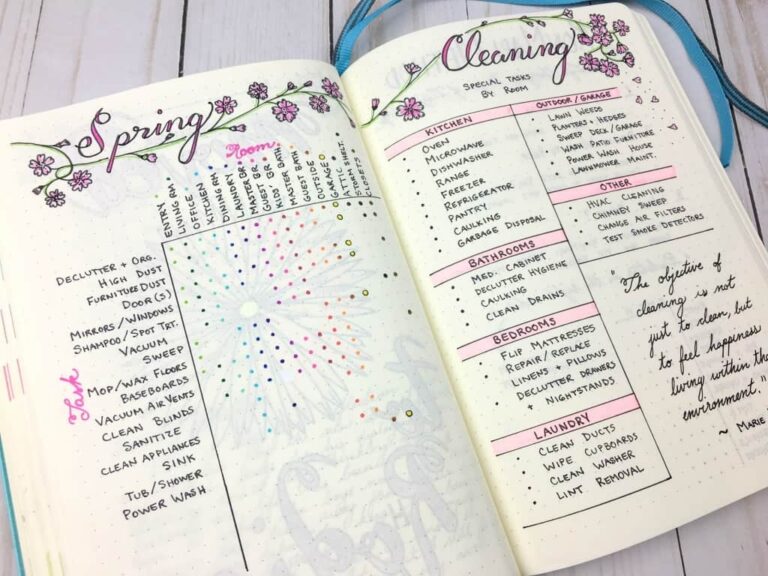 Spring
Room
ENTRY
LIVING RM
OFFICE
KITCHEN
DINING RM
LAUNDRY
MASTER BR
GUEST BR
KIDS BATH
MASTER BATH
GUEST
OUTSIDE
GARAGE
ATTIC
STORM SHELT.
CLOSETS
Task
DECLUTTER + ORG.
HIGH DUST
FURNITURE DUST
DOOR(S)
MIRRORS/WINDOWS
SHAMPOO/SPOT TRT.
VACUUM
SWEEP
MOP/WAX FLOORS
BASEBOARDS
VACUUM AIR VENTS
CLEAN BLINDS
SANITIZE
CLEAN APPLIANCES
SINK
TUB/SHOWER
POWER WASH
Cleaning
SPECIAL TASKS
BY ROOM
KITCHEN
• OVEN
• MICROWAVE
• DISHWASHER
• RANGE
• FREEZER
• REFRIGERATOR
• PANTRY
• CAULKING
• GARBAGE DISPOSAL
BATHROOMS
• MED. CABINET
• DECLUTTER HYGIENE
• CAULKING
• CLEAN DRAINS
BEDROOMS
• FLIP MATTRESSES
• REPAIR/REPLACE
LINENS + PILLOWS
• DECLUTTER DRAWERS
+ NIGHTSTANDS
LAUNDRY
• CLEAN DUCTS
• WIPE CUPBOARDS
• CLEAN WASHER
• LINT REMOVAL
OUTDOOR/GARAGE
• LAWN WEEDS
• PLANTERS + HEDGES
• SWEEP DECK/GARAGE
• WASH PATIO FURNITURE
• POWER WASH HOUSE
• LAWNMOWER MAINT.
OTHER
• HVAC CLEANING
• CHIMNEY SWEEP
• CHANGE AIR FILTERS
• TEST SMOKE DETECTORS
"The objective of
cleaning is not
just to clean, but
to feel happiness
living within the
environment."
~ MARIE